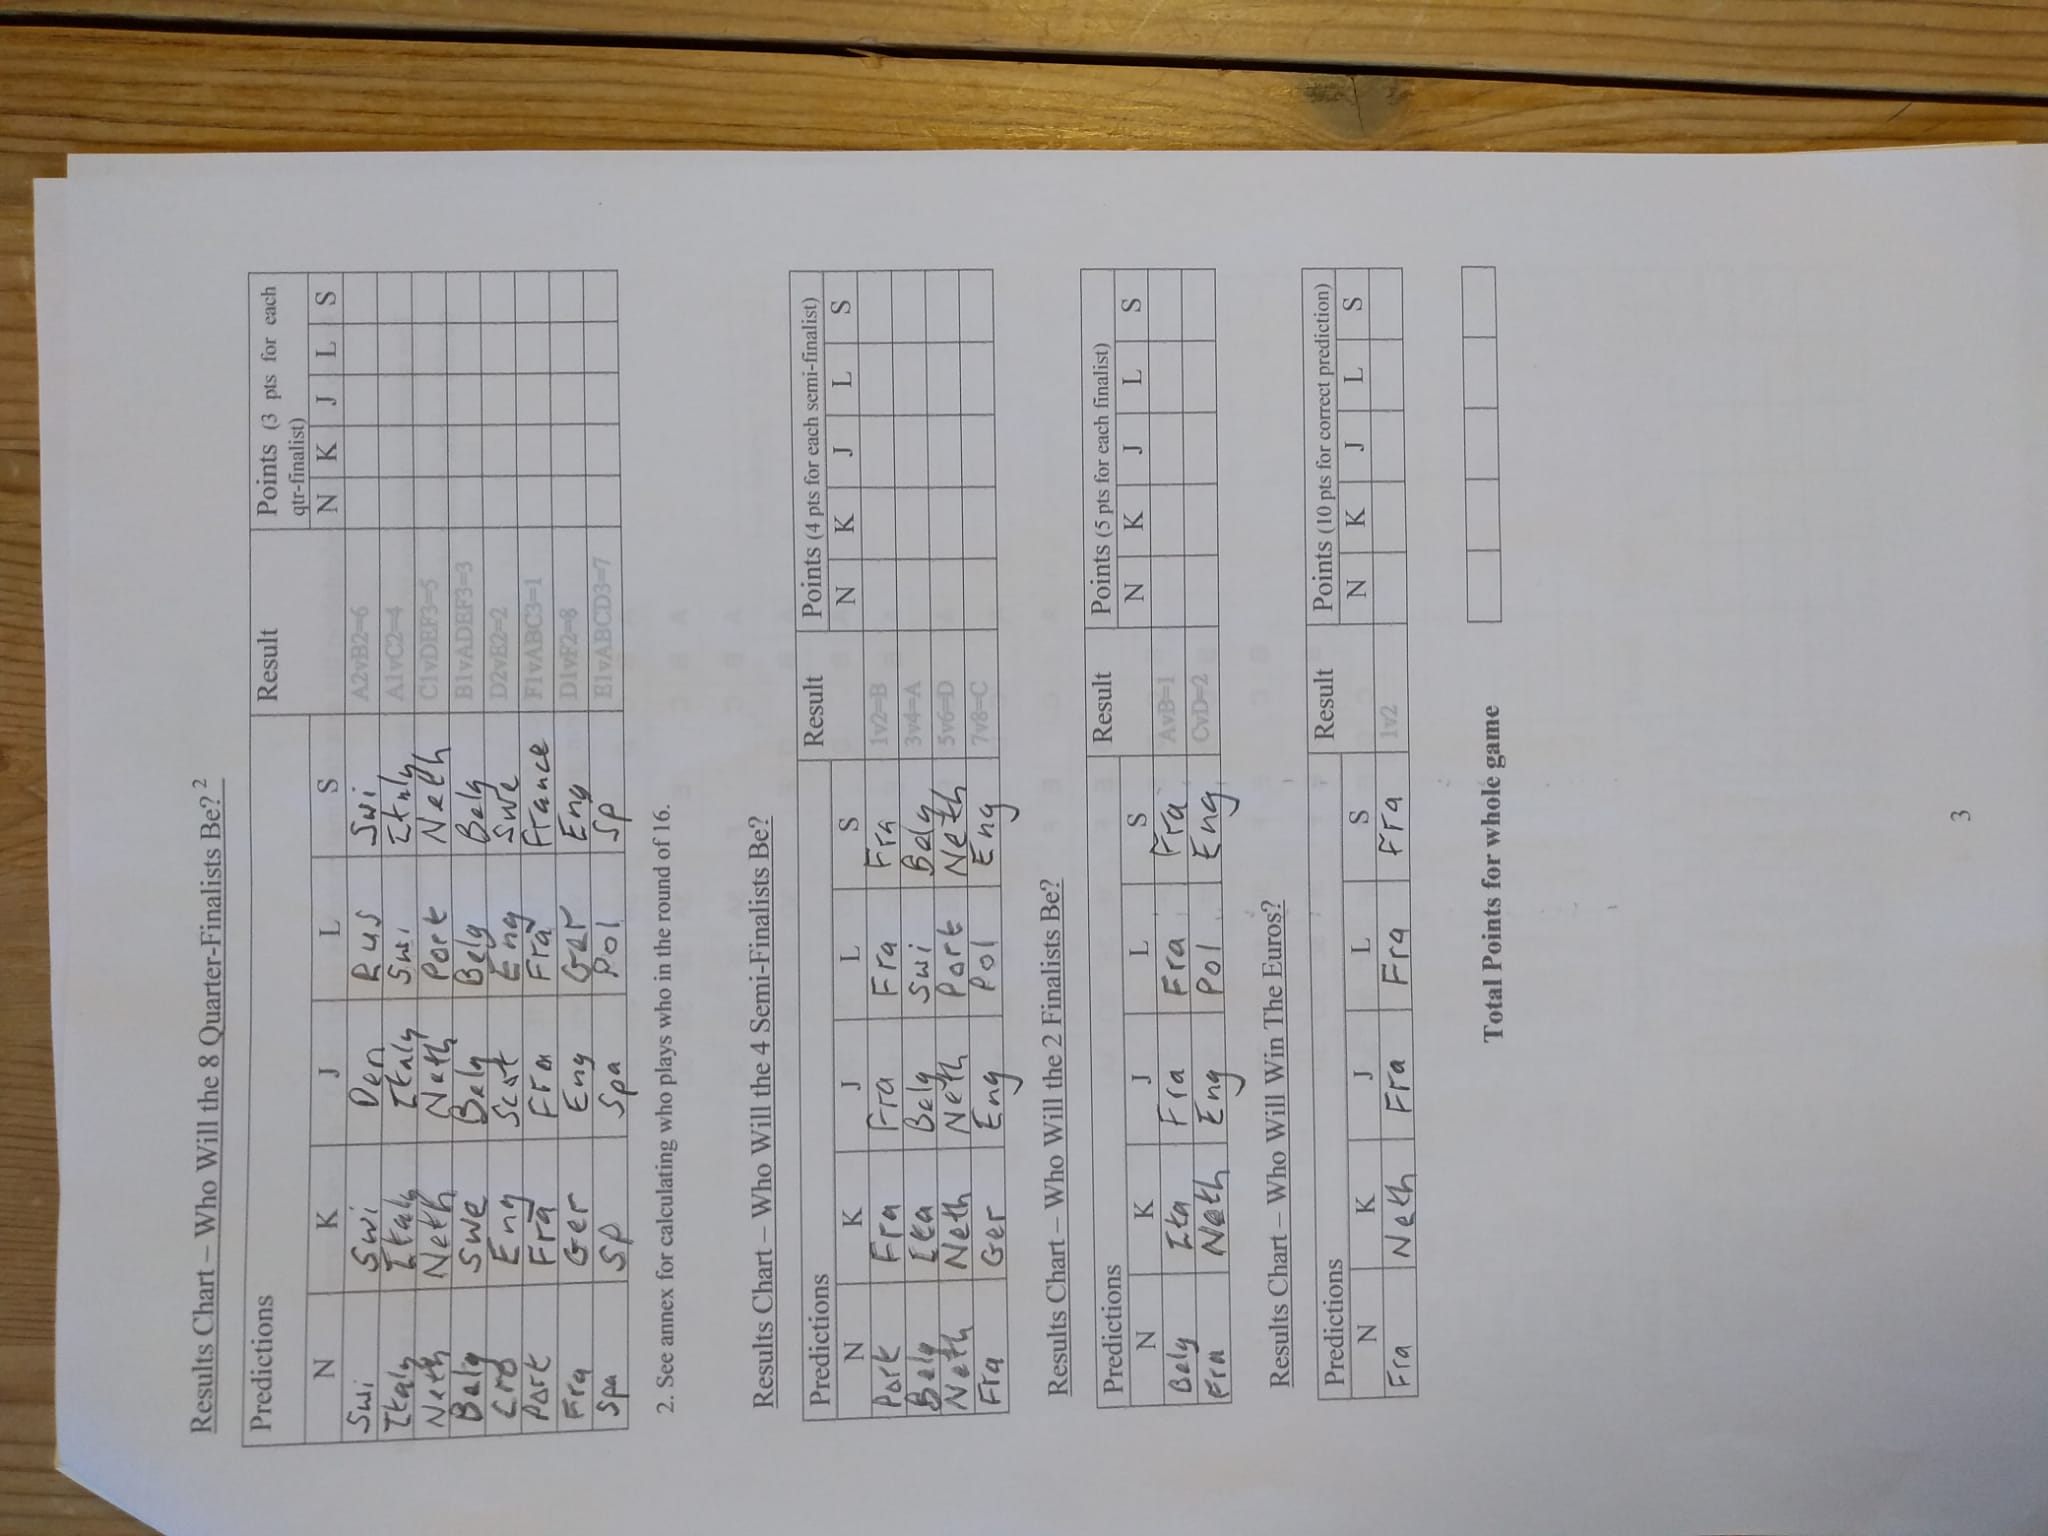 Results Chart – Who Will the 8 Quarter-Finalists Be? 2
Predictions Result Points (3 pts for each qtr-finalist)
N K J L S N K J L S
Swi Swi Den Rus Swi A2vB2=6
Italy Italy Italy Swi Italy A1vC2=4
Neth Neth Neth Port Neth C1vDEF3=5
Belg Swe Belg Belg Belg B1vADEF3=3
Cro Eng Scot Eng Swe D2vE2=2
Port Fra Fra Fra France F1vABC3=1
Fra Ger Eng Ger Eng D1vF2=8
Spa Sp Spa Pol Sp E1vABCD3=7
2. See annex for calculating who plays who in the round of 16.
Results Chart – Who Will the 4 Semi-Finalists Be?
Predictions Result Points (4 pts for each semi-finalist)
N K J L S N K J L S
Port Fra Fra Fra Fra 1v2=B
Belg Ita Belg Swi Belg 3v4=A
Neth Neth Neth Port Neth 5v6=D
Fra Ger Eng Pol Eng 7v8=C
Results Chart – Who Will the 2 Finalists Be?
Predictions Result Points (5 pts for each finalist)
N K J L S N K J L S
Belg Ita Fra Fra Fra AvB=1
Fra Neth Eng Pol Eng CvD=2
Results Chart – Who Will Win The Euros?
Predictions Result Points (10 pts for correct prediction)
N K J L S N K J L S
Fra Neth Fra Fra Fra 1v2
Total Points for whole game
3